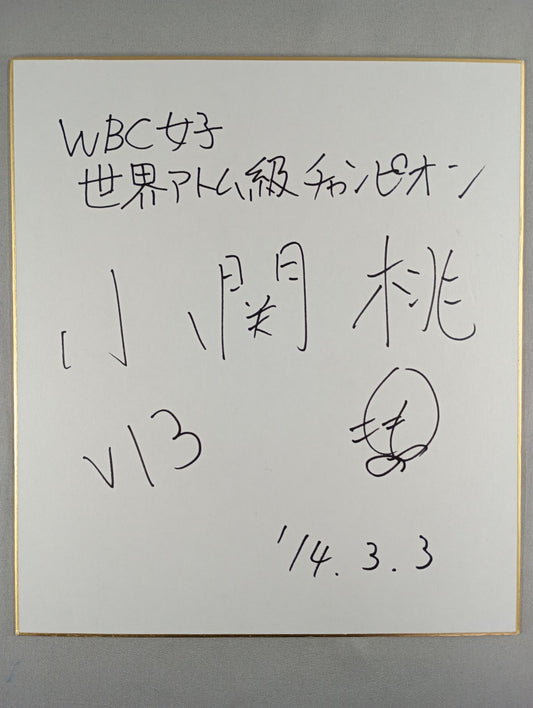 WBC女子
世界アトム級チャンピオン
小関 桃
V13
もも
'14.3.3